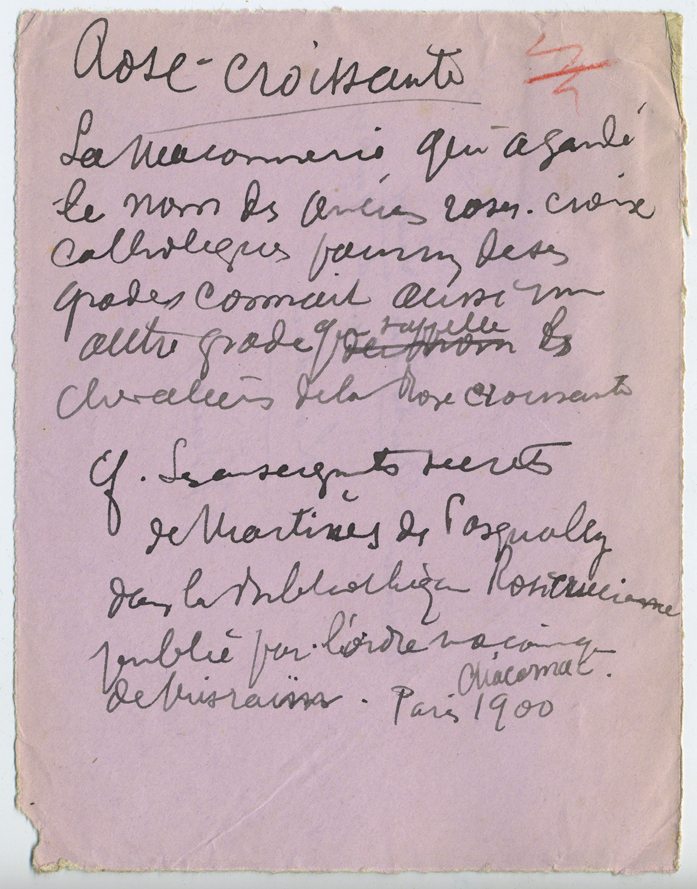 Rose-croissante
La Maçonnerie qui a gardé
le nom des anciens roses-croix
catholiques pour un de ses
grades connait aussi un
autre grade qui rappelle les
chevaliers de la Rose croissante
cf. Les enseignts secrets
de Martinès de Pasqually
dans la Bibliothèque Rosicrucienne
publié par l'ordre maçonnique
de Misraïm. Chacornac.
Paris 1900